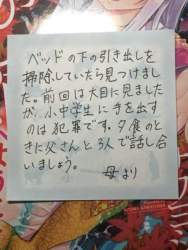 ベッドの下の引き出しを
掃除していたら見つけまし
た。前回は大目に見ました
が、小中学生に手を出す
のは犯罪です。夕食のと
きに父さんと3人で話し合
いましょう。
母より